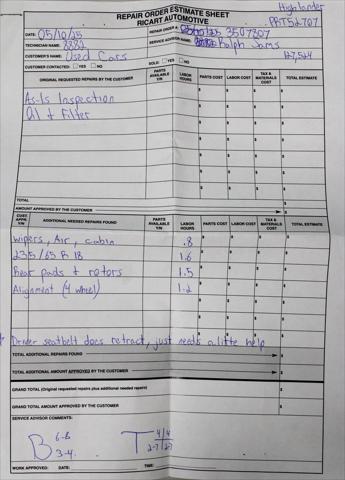 Highlander
REPAIR ORDER ESTIMATE SHEET
RICART AUTOMOTIVE
PRT52707
DATE: 05/10/25
REPAIR ORDER #: 3507307
TECHNICIAN NAME: 8882
SERVICE ADVISOR NAME: Ralph Sams
CUSTOMER'S NAME: Used Cars
127,524
CUSTOMER CONTACTED: YES NO
SOLD: YES NO
ORIGINAL REQUESTED REPAIRS BY THE CUSTOMER
PARTS AVAILABLE Y/N
LABOR HOURS
PARTS COST
LABOR COST
TAX & MATERIALS COST
TOTAL ESTIMATE
As-Is Inspection
Oil + Filter
TOTAL
AMOUNT APPROVED BY THE CUSTOMER
CUST. APPR. Y/N
ADDITIONAL NEEDED REPAIRS FOUND
PARTS AVAILABLE Y/N
LABOR HOURS
PARTS COST
LABOR COST
TAX & MATERIALS COST
TOTAL ESTIMATE
wipers, Air, cabin .8
235/65 R 18 1.6
Rear pads + rotors 1.5
Alignment (4 wheel) 1.2
Driver seatbelt does retract, just needs a little help
TOTAL ADDITIONAL REPAIRS FOUND
TOTAL ADDITIONAL AMOUNT APPROVED BY THE CUSTOMER
GRAND TOTAL (Original requested repairs plus additional needed repairs)
GRAND TOTAL AMOUNT APPROVED BY THE CUSTOMER
SERVICE ADVISOR COMMENTS:
B 6-8 T 4 4
3-4 2-7 2-7
WORK APPROVED: DATE: TIME: